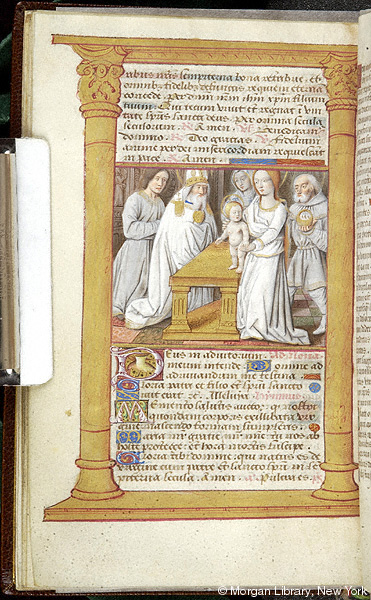 abus nr̄is sempiterna bona retribue. et
omnib; fidelib; defunctis requiem eterna
concede. per dn̄m nr̄m ihm xpm filium
tuum. Qui tecum vivit et regnat i vni
tate sp̄us sancti deus. per omnia secula
seculorum. Amen. Benedicam
domino. Deo gratias. Fidelium
anime per dei misericordiam requiescat
in pace. Amen.
Deus in adiutoriū. Ad Nonā
meum intende. Domine ad
adiuvandum me festina
Gloria patri et filio et sp̄ui sancto
sicut erat. Alleluia. Hymnus
Memento salutis auctor. q nostri
quondam corporis ex illibata vir
gine nascendo formam sumpseris
Maria mater gratie tu nos ab
hoste protege et hora mortis suscipe.
Gloria tibi domine qui natus es de
virgine cum patre et sancto sp̄u in se
piterna secula. Amen.
© Morgan Library, New York